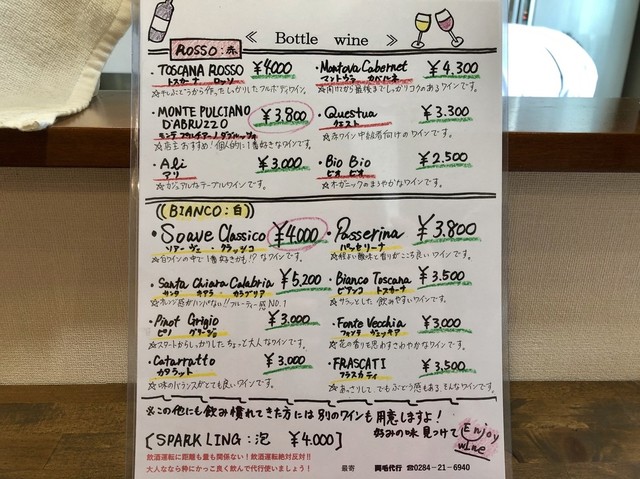 ≪ Bottle wine ≫
ROSSO:赤
・TOSCANA ROSSO ¥4000
トスカーナ ロッソ
☆干しぶどうから作ったしっかりしたフルボディワイン。
・Montova Cabernet ¥4,300
マントヴァ カバルネ
☆開けてから最後までしっかりコクのあるワインです。
・MONTE PULCIANO D'ABRUZZO ¥3.800
モンテ プルチアーノ ダブルッツォ
☆店主おすすめ!個人的に1番好きなワインです。
・Questua ¥3.300
クエスト
☆赤ワイン中級者向けのワインです。
・Ali ¥3.000
アリ
☆カジュアルなテーブルワインです。
・Bio Bio ¥2,500
ビオ ビオ
☆オーガニックのまろやかなワインです。
BIANCO:白
・Soave Classico ¥4.000
ソアーヴェ・クラッシコ
☆白ワインの中で1番好きかも!?なワインです。
・Passerina ¥3.800
パッセリーナ
☆程よい酸味と香りがここち良いワインです。
・Santa Chiara Calabria ¥5,200
サンタ キアラ カラブリア
☆オレンジ感がハンパない!!フルーティー感NO.1
・Bianco Toscana ¥3.500
ビアンコ トスカーナ
☆サラッとした飲みやすいワインです。
・Pinot Grigio ¥3,000
ピノ グリージョ
☆スタートからしっかりしたちょっと大人なワインです。
・Fonte Vecchia ¥3,000
フォンテ ヴェッキア
☆花の香りを思わすさわやかなワインです。
・Catarratto ¥3.000
カタラット
☆味のバランスがとても良いワインです。
・FRASCATI ¥3,500
フラスカティ
☆あっさりして、でもぶどう感もある、そんなワインです。
※この他にも飲み慣れてきた方には別のワインも用意しますよ!
好みの味 見つけて Enjoy wine
[SPARKLING:泡 ¥4.000]
飲酒運転に距離も量も関係ない!飲酒運転絶対反対!!
大人なら粋にかっこ良く飲んで代行使いましょう!
最寄 両毛代行 ☎0284-21-6940